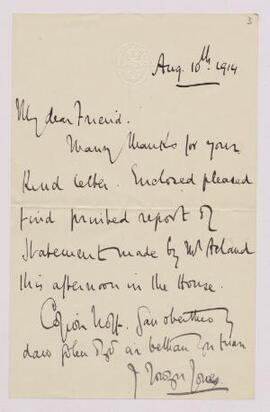 3
Aug. 10th 1914
My dear Friend.
Many thanks for your
kind letter. Enclosed please
find printed report of
statement made by Mr Acland
this afternoon in the House.
Cofion
Jones